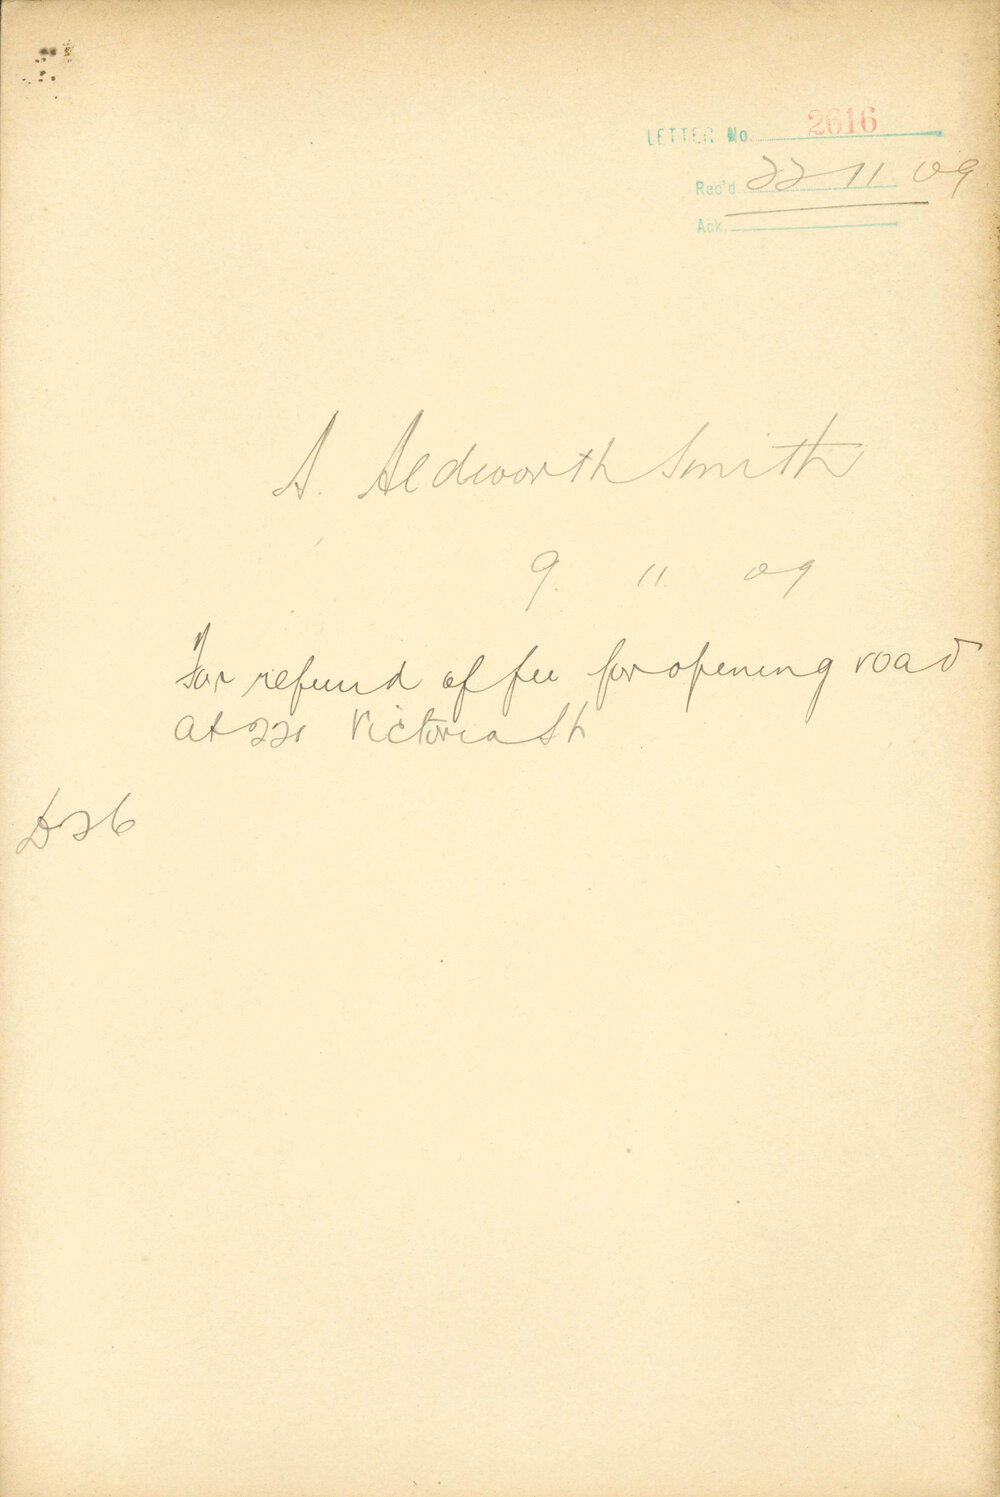 LETTER No. 2616
Rec'd 22 11 09
Ack.
S. Aldworth Smith
9. 11. 09
For refund of fee for opening road
at 221 Victoria St